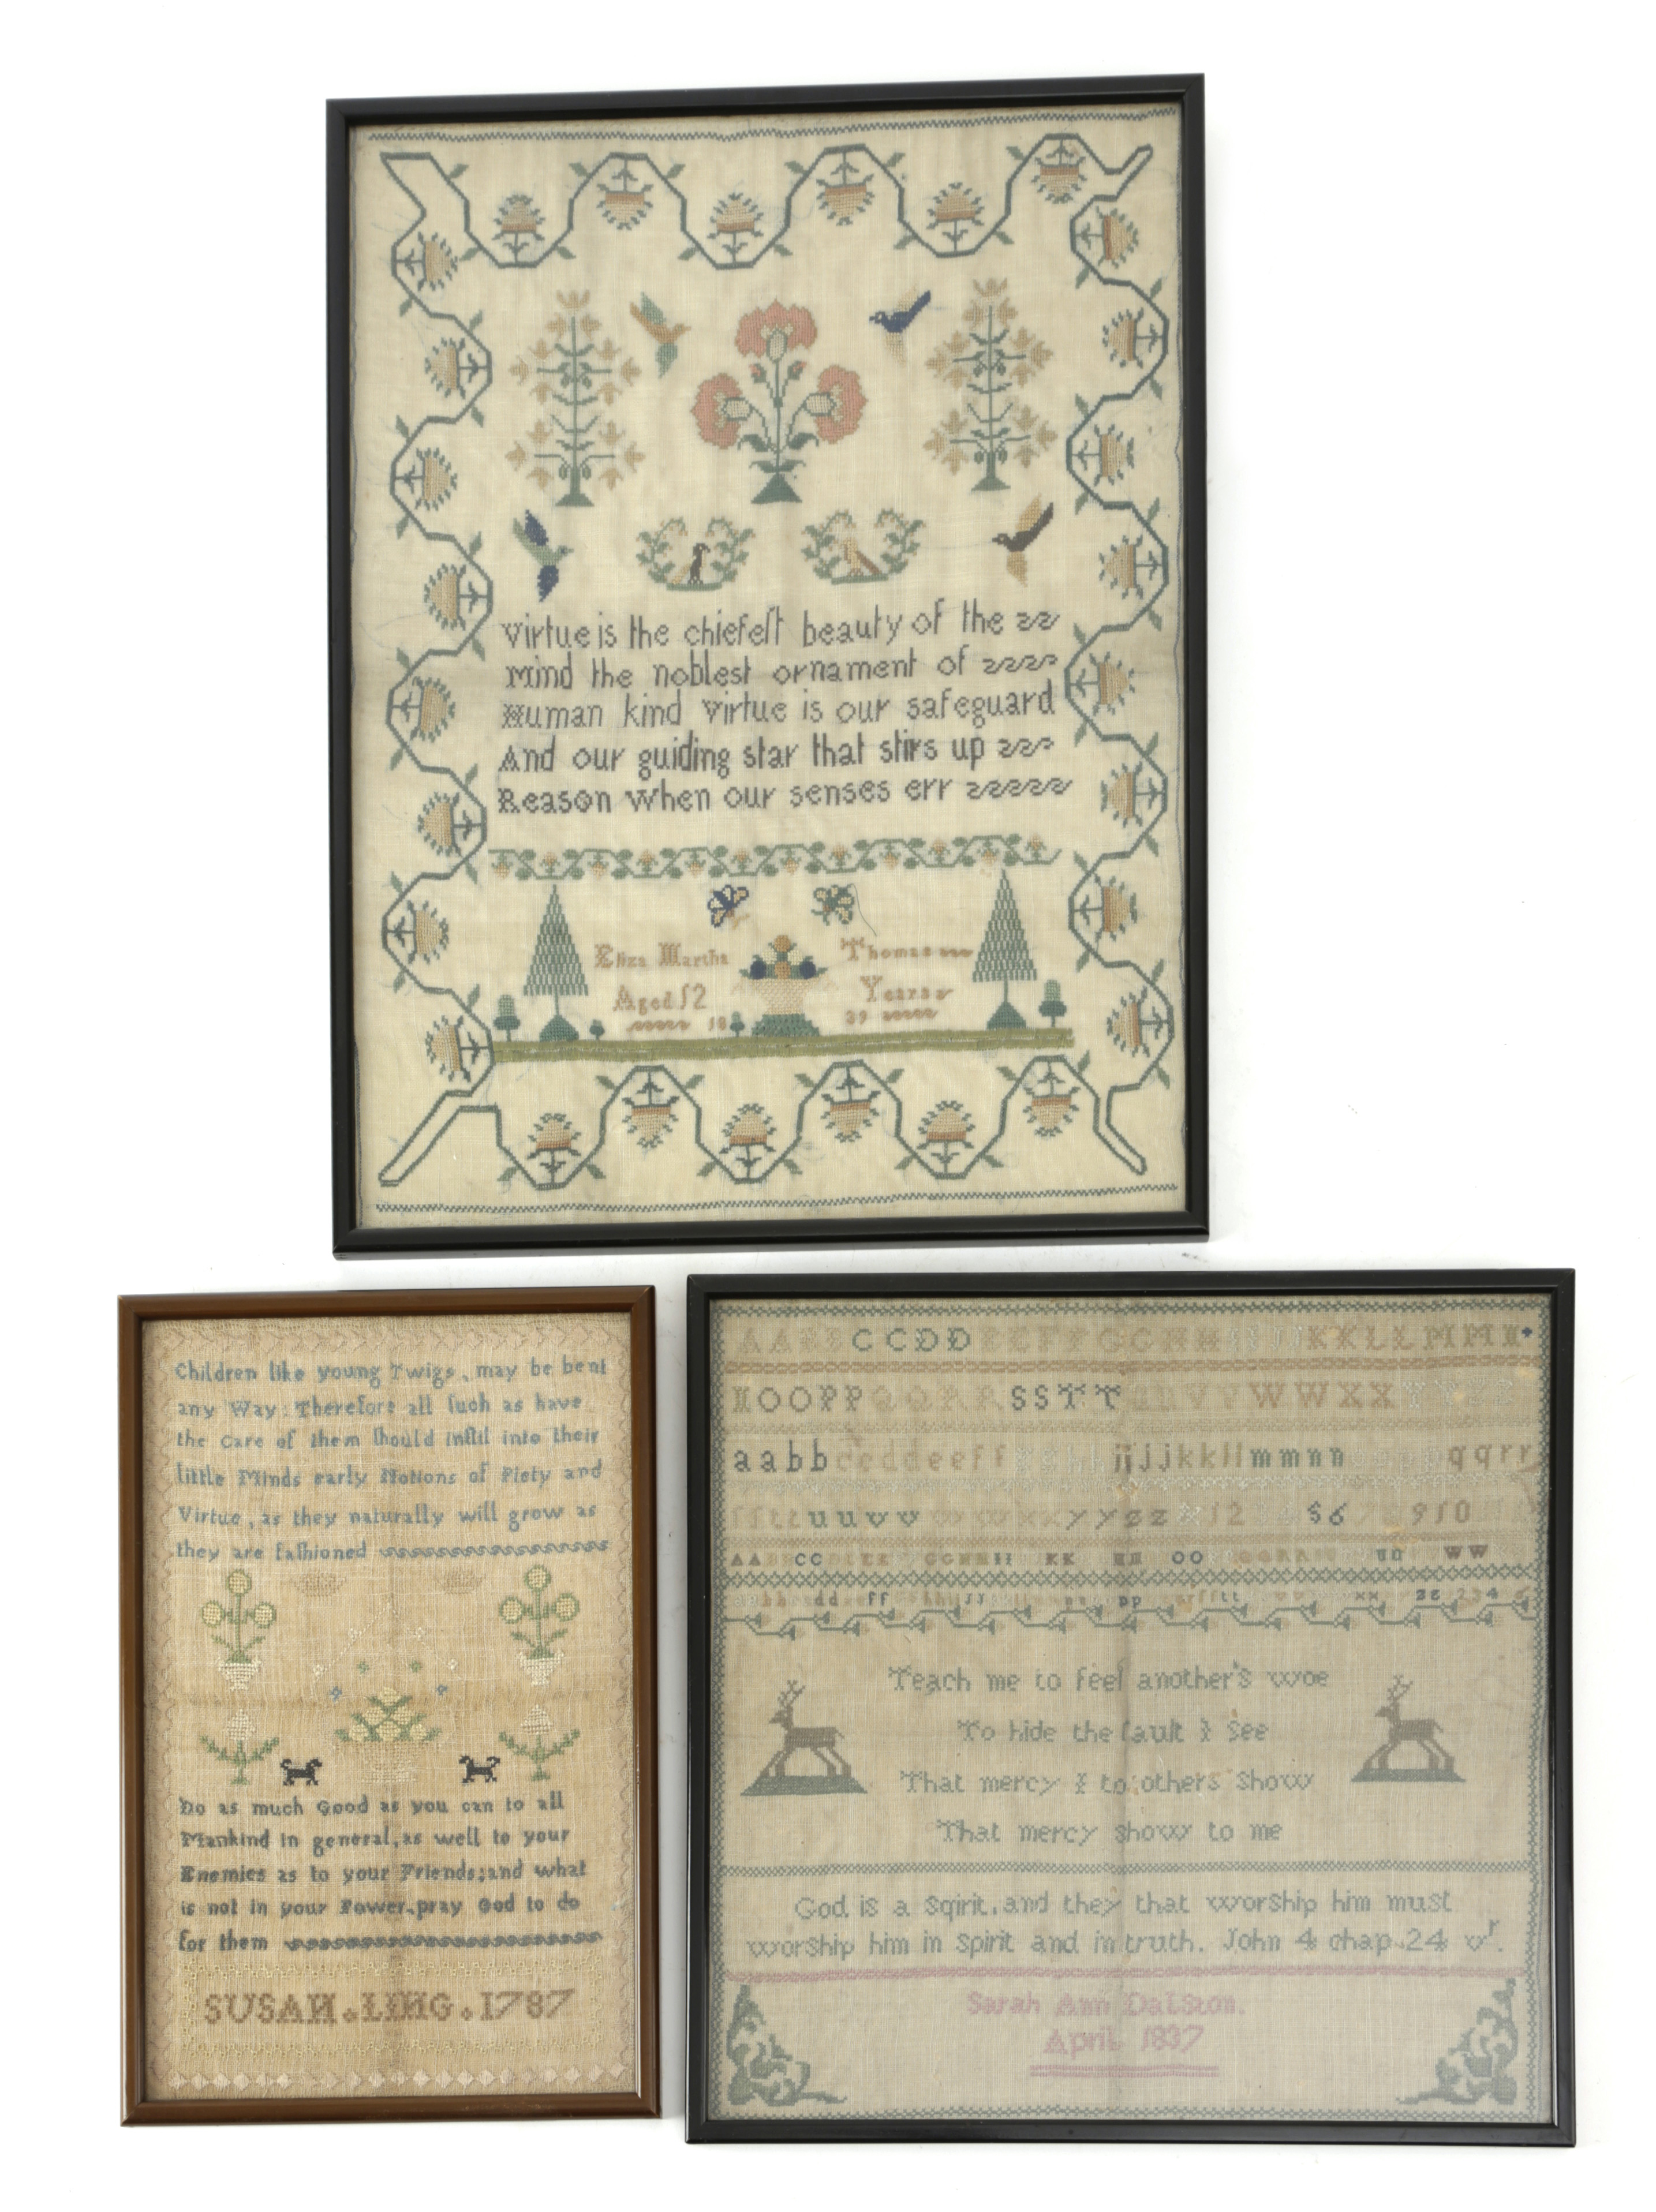 Virtue is the chiefeſt beauty of the
Mind the noblest ornament of
Human kind Virtue is our safeguard
And our guiding star that stirs up
Reason When our senses err
Eliza Martha Thomas
Aged 12 Years
18 39
Children like young Twigs, may be bent
any Way: Therefore all ſuch as have
the Care of them ſhould inſtil into their
little Minds early Notions of Piety and
Virtue, as they naturally will grow as
they are faſhioned
Do as much Good as you can to all
Mankind in general, as well to your
Enemies as to your Friends; and what
is not in your Power, pray God to do
for them
SUSAN. LING. 1787
AABBCCDDEEFFGGHHIIJJKKLLMMN
NOOPPQQRRSSTTUUVVWWXXYY
aabbccddeeff jjkkllmmnn qqrr
ttuuvvwwxxyyzz&12 56 910
AA CC GGHHII KK NN OO WW
dd ff jj pp tt xx zz 234
Teach me to feel another's woe
To hide the fault I See
That mercy I to others Show
That mercy Show to me
God is a Sqirit, and they that worShip him must
worShip him in Spirit and in truth. John 4 chap 24 vr.
Sarah Ann DalSton.
April 1837